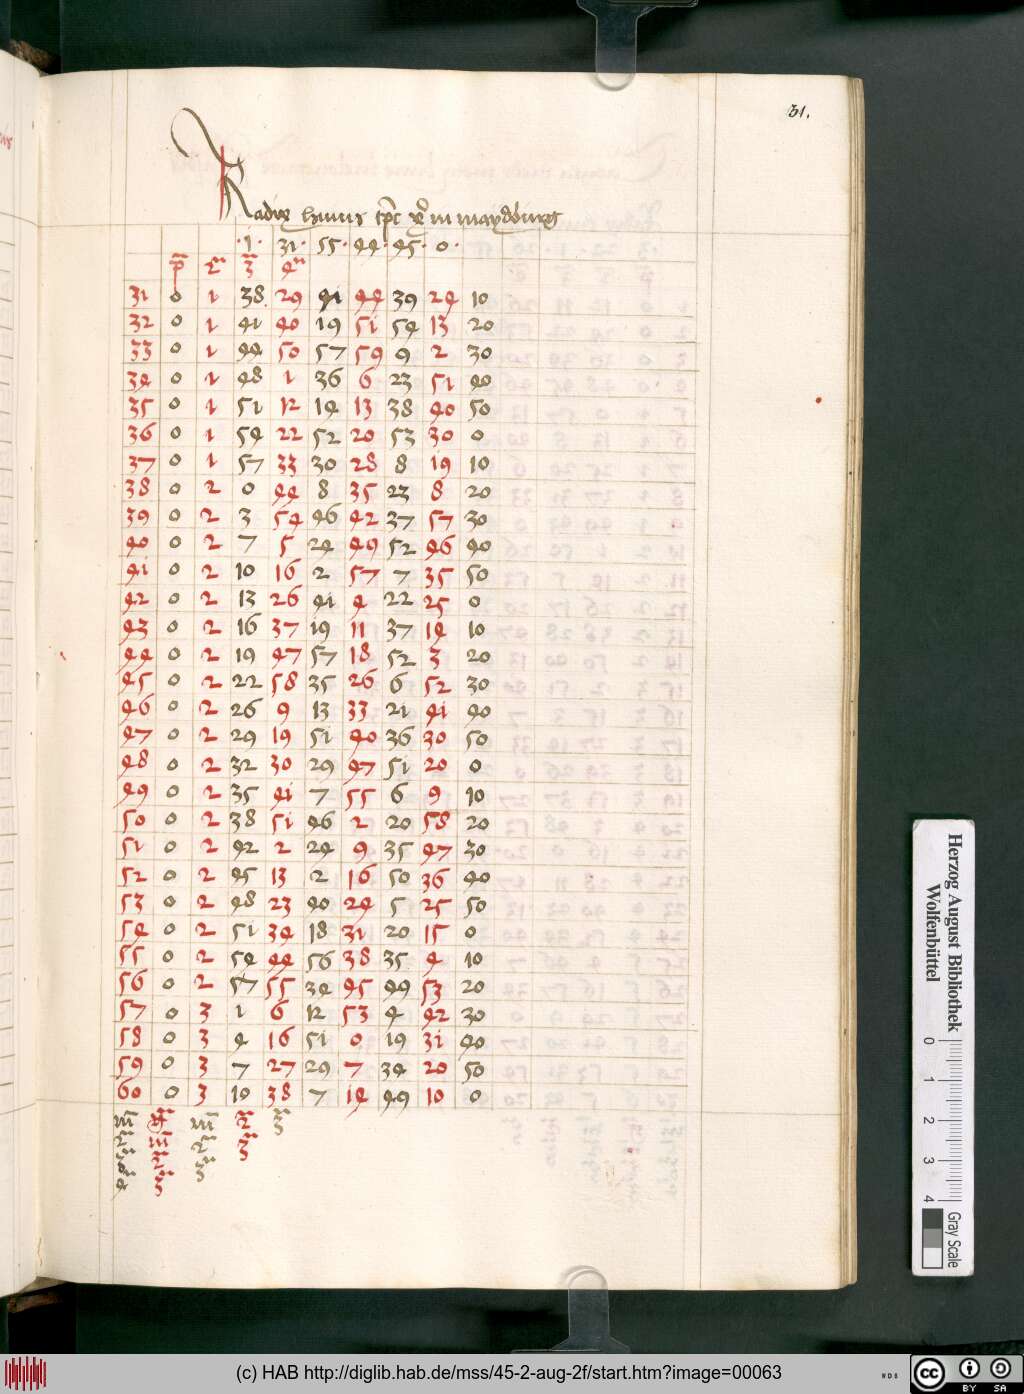 31.
Radix huius in maydburg
·1· 31· 55· 44· 45· 0·
31 0 1 38 29 41 44 39 24 10
32 0 1 41 40 19 51 54 13 20
33 0 1 44 50 57 59 9 2 30
34 0 1 48 1 36 6 23 51 40
35 0 1 51 12 14 13 38 40 50
36 0 1 54 22 52 20 53 30 0
37 0 1 57 33 30 28 8 19 10
38 0 2 0 44 8 35 23 8 20
39 0 2 3 54 46 42 37 57 30
40 0 2 7 5 24 49 52 46 40
41 0 2 10 16 2 57 7 35 50
42 0 2 13 26 41 4 22 25 0
43 0 2 16 37 19 11 37 14 10
44 0 2 19 47 57 18 52 3 20
45 0 2 22 58 35 26 6 52 30
46 0 2 26 9 13 33 21 41 40
47 0 2 29 19 51 40 36 30 50
48 0 2 32 30 29 47 51 20 0
49 0 2 35 41 7 55 6 9 10
50 0 2 38 51 46 2 20 58 20
51 0 2 42 2 24 9 35 47 30
52 0 2 45 13 2 16 50 36 40
53 0 2 48 23 40 24 5 25 50
54 0 2 51 34 18 31 20 15 0
55 0 2 54 44 56 38 35 4 10
56 0 2 57 55 34 45 49 53 20
57 0 3 1 6 12 53 4 42 30
58 0 3 4 16 51 0 19 31 40
59 0 3 7 27 29 7 34 20 50
60 0 3 10 38 7 14 49 10 0
Herzog August Bibliothek
Wolfenbüttel
0 1 2 3 4
Gray Scale
(c) HAB http://diglib.hab.de/mss/45-2-aug-2f/start.htm?image=00063
cc BY SA